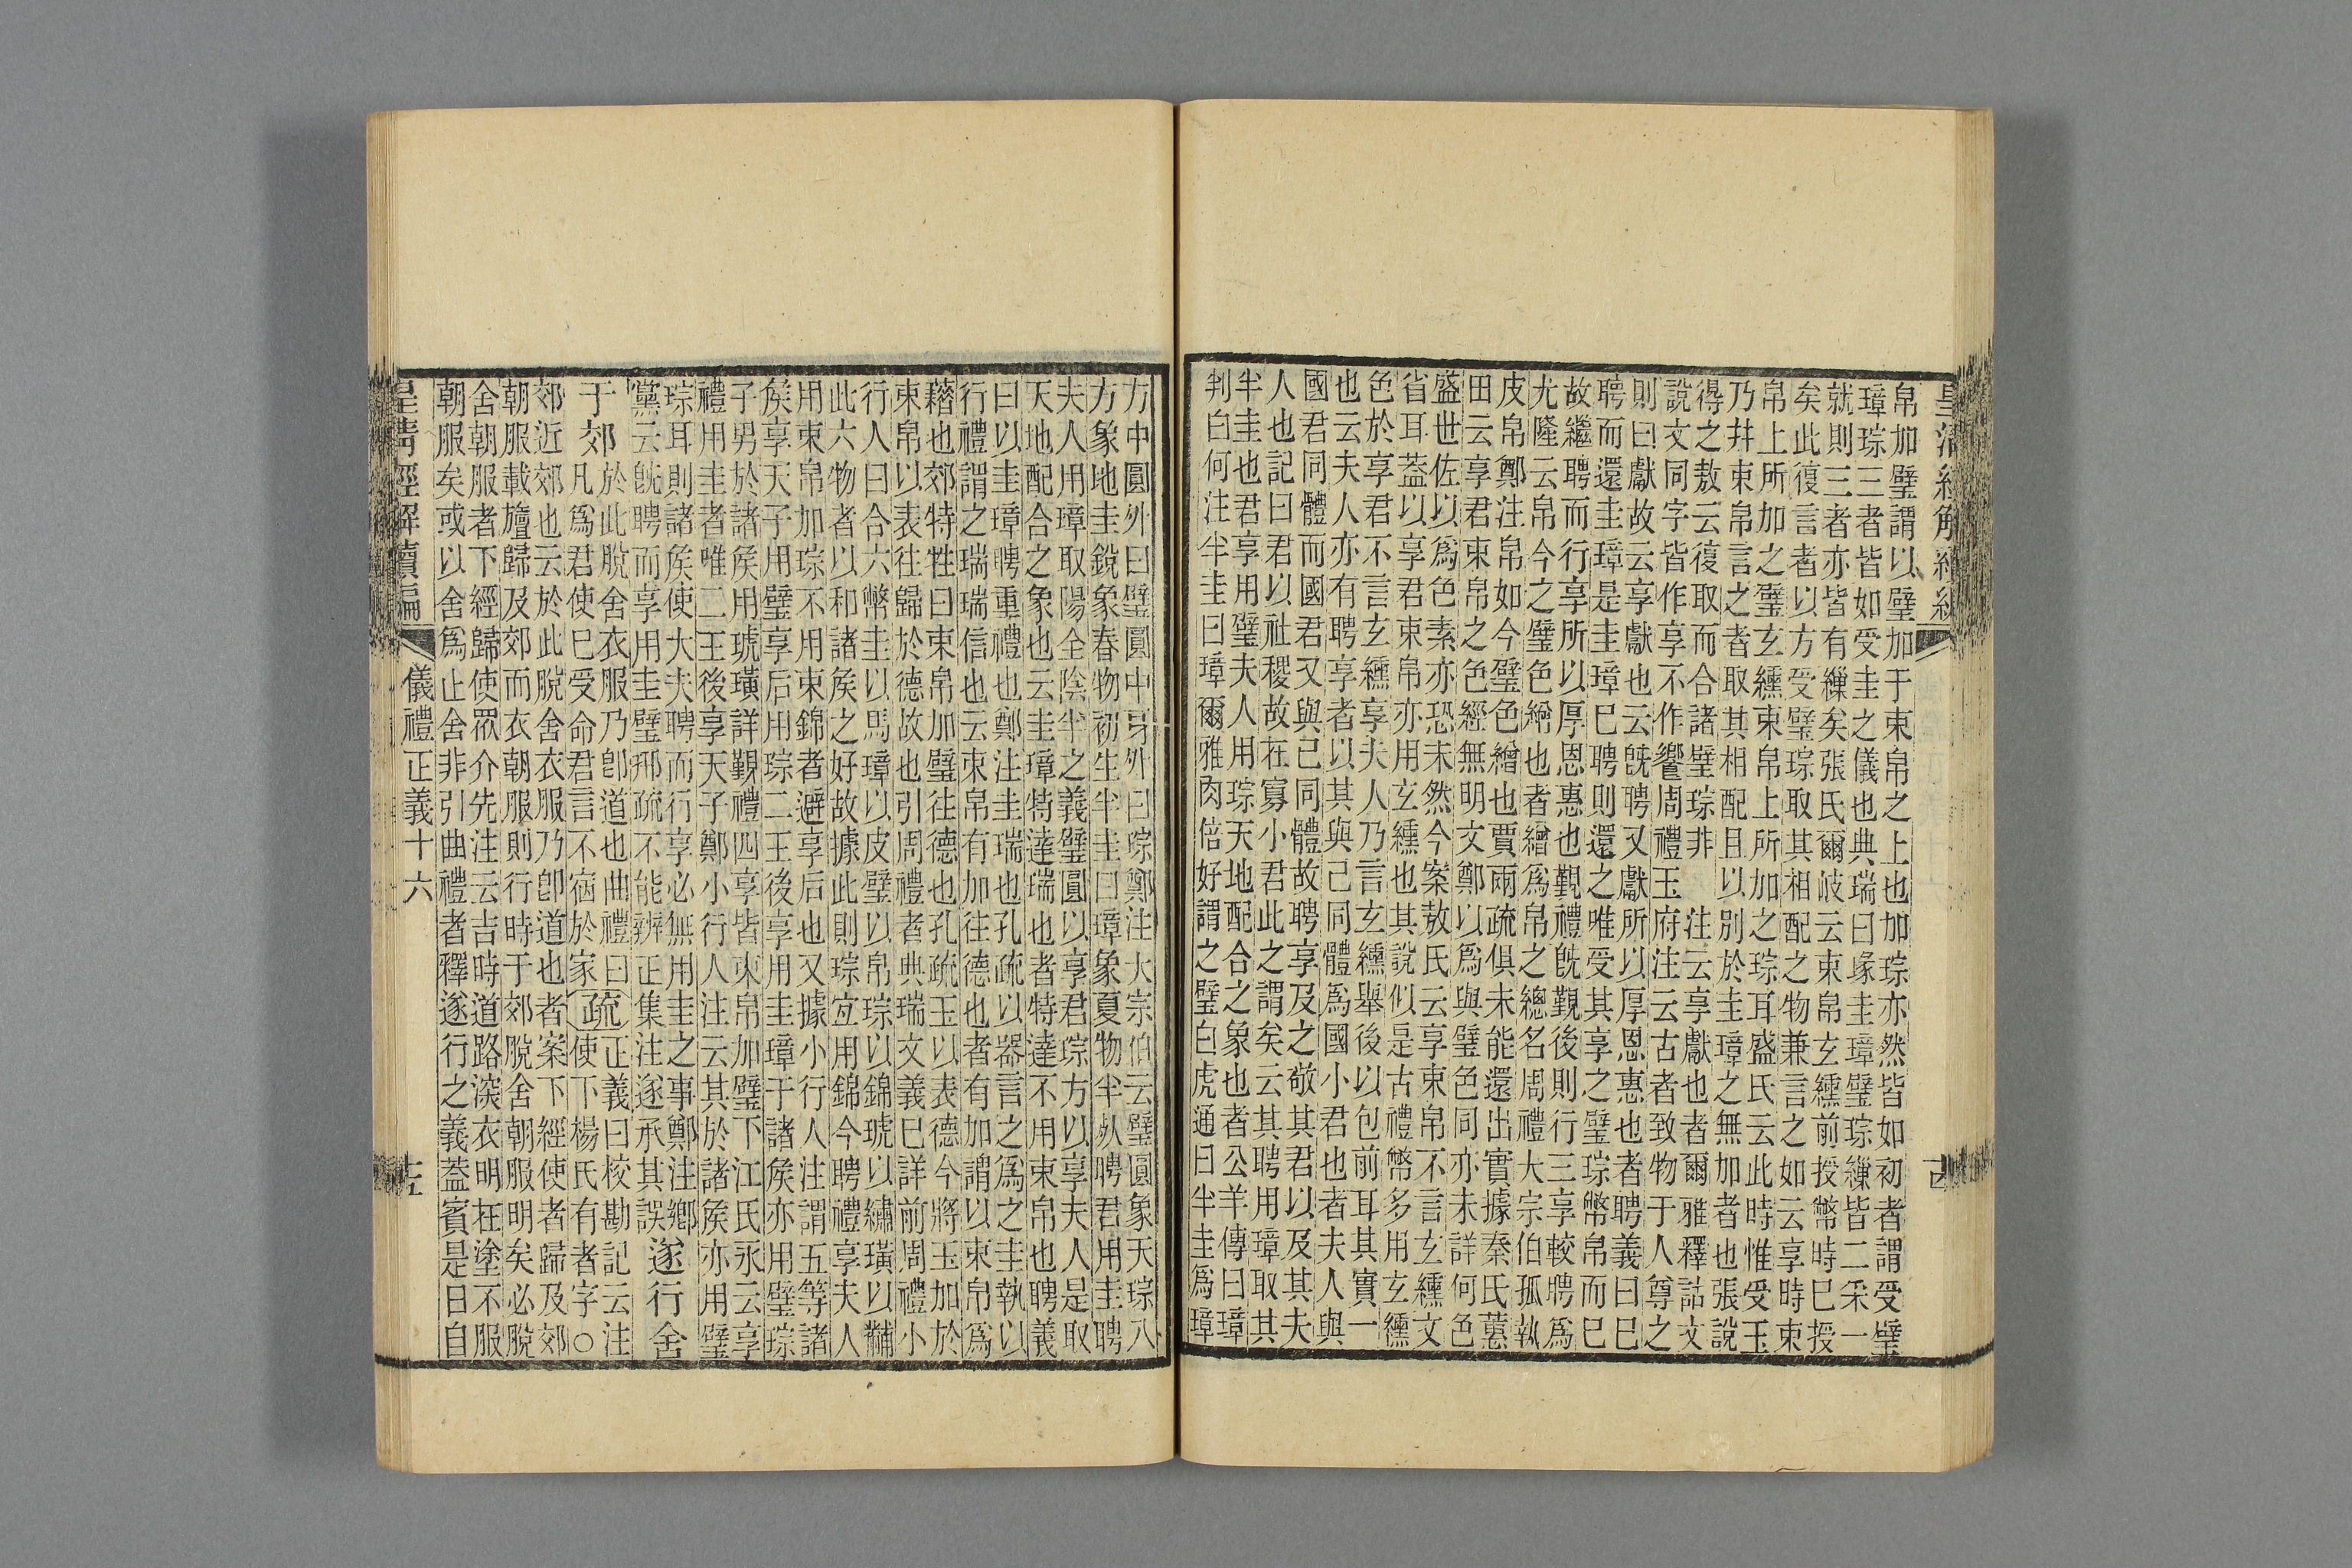 皇清經解續編
帛加璧謂以璧加于束帛之上也加琮亦然皆如初者謂受璧
璋琮三者皆如受圭之儀也典瑞曰瑑圭璋璧琮繅皆二采一
就則三者亦皆有繅矣張氏爾岐云束帛玄纁前授幣時巳授
矣此復言者以方受璧琮取其相配之物兼言之如云享時束
帛上所加之璧玄纁束帛上所加之琮耳盛氏云此時惟受玉
乃幷束帛言之者取其相配且以別於圭璋之無加者也張說
得之敖云復取而合諸璧琮非　注云享獻也者爾雅釋詁文
說文同字皆作享不作饗周禮玉府注云古者致物于人尊之
則曰獻故云享獻也云旣聘又獻所以厚恩惠也者聘義曰巳
聘而還圭璋是圭璋巳聘則還之唯受其享之璧琮幣帛而巳
故繼聘而行享所以厚恩惠也覲禮旣覲後則行三享較聘爲
尤隆云帛今之璧色繒也者繒爲帛之總名周禮大宗伯孤執
皮帛鄭注帛如今璧色繒也賈兩疏俱未能還出實據秦氏蕙
田云享君束帛之色經無明文鄭以爲與璧色同亦未詳何色
盛世佐以爲色素亦恐未然今案敖氏云享束帛不言玄纁文
省耳葢以享君束帛亦用玄纁也其說似是古禮幣多用玄纁
色於享君不言玄纁享夫人乃言玄纁舉後以包前耳其實一
也云夫人亦有聘享者以其與己同體爲國小君也者夫人與
國君同體而國君又與己同體故聘享及之敬其君以及其夫
人也記曰君以社稷故在寡小君此之謂矣云其聘用璋取其
半圭也君享用璧夫人用琮天地配合之象也者公羊傳曰璋
判白何注半圭曰璋爾雅肉倍好謂之璧白虎通曰半圭爲璋
方中圓外曰璧圓中牙外曰琮鄭注大宗伯云璧圓象天琮八
方象地圭銳象春物初生半圭曰璋象夏物半死聘君用圭聘
夫人用璋取陽全陰半之義璧圓以享君琮方以享夫人是取
天地配合之象也云圭璋特達瑞也者特達不用束帛也聘義
曰以圭璋聘重禮也鄭注圭瑞也孔疏以器言之爲之圭執以
行禮謂之瑞瑞信也云束帛有加往德也者有加謂以束帛爲
藉也郊特牲曰束帛加璧往德也孔疏玉以表德今將玉加於
束帛以表往歸於德故也引周禮者典瑞文義巳詳前周禮小
行人曰合六幣圭以馬璋以皮璧以帛琮以錦琥以繡璜以黼
此六物者以和諸矦之好故據此則琮宐用錦今聘禮享夫人
用束帛加琮不用束錦者避享后也又據小行人注謂五等諸
矦享天子用璧享后用琮二王後享用圭璋于諸矦亦用璧琮
子男於諸矦用琥璜詳覲禮四享皆束帛加璧下江氏永云享
禮用圭者唯二王後享天子鄭小行人注云其於諸矦亦用璧
琮耳則諸矦使大夫聘而行享必無用圭之事鄭注鄉
黨云旣聘而享用圭璧邢疏不能辨正集注遂承其誤　遂行舍
于郊　於此脫舍衣服乃卽道也曲禮曰
凡爲君使巳受命君言不宿於家　疏　正義曰校勘記云注
使下楊氏有者字○
郊近郊也云於此脫舍衣服乃卽道也者案下經使者歸及郊
朝服載旜歸及郊而衣朝服則行時于郊脫舍朝服明矣必脫
舍朝服者下經歸使眾介先注云吉時道路深衣明在塗不服
朝服矣或以舍爲止舍非引曲禮者釋遂行之義葢賓是日自
皇清經解續編　儀禮正義十六